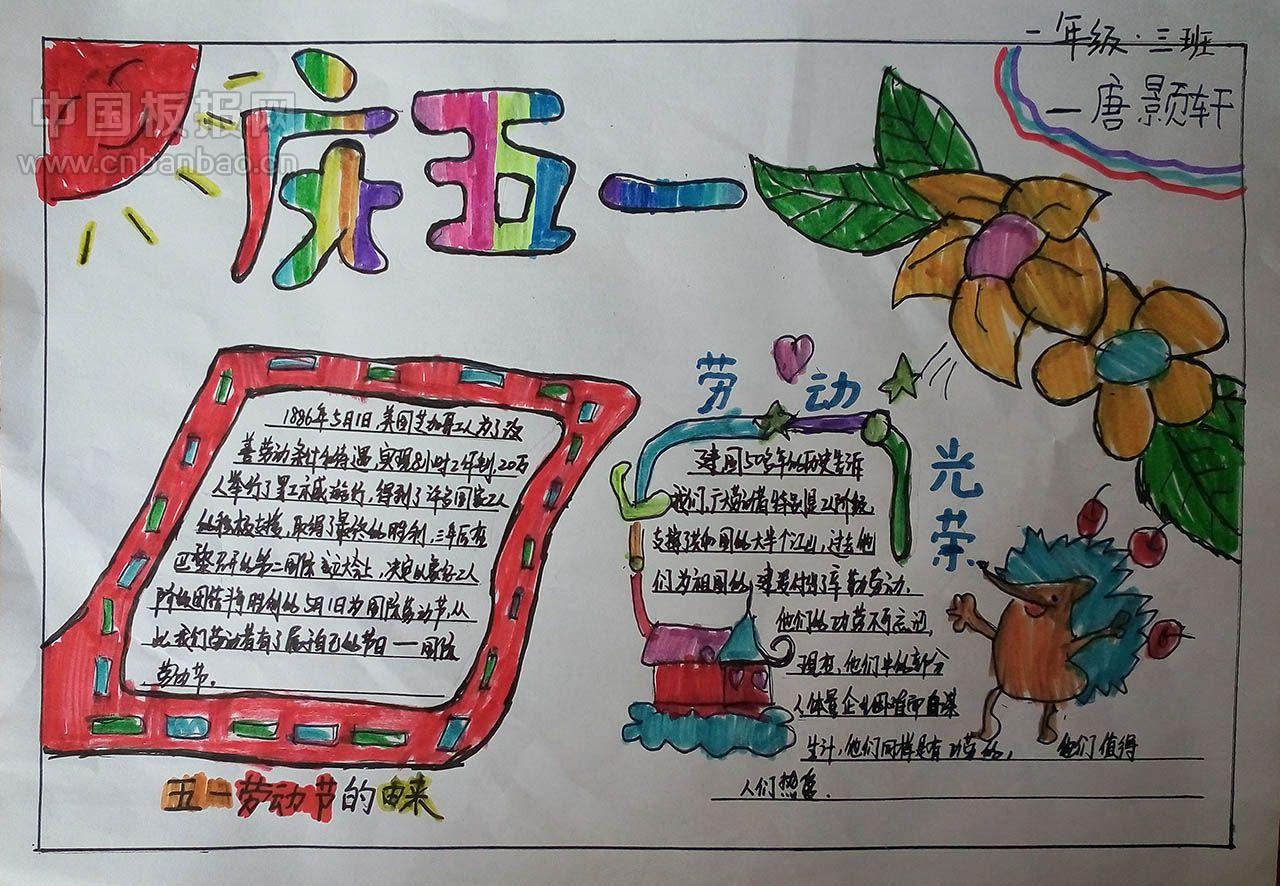 一年级·三班
唐颢轩
中国板报网
www.cnbanbao.cn
庆五一
1886年5月1日,美国芝加哥工人为了改
善劳动条件和待遇,实现8小时工作制20万
人举行了罢工示威游行,得到了许多国家工人
的积极支援,取得了最终的胜利,三年后在
巴黎召开的第二国际成立大会上,决定以象征工人
阶级团结斗争胜利的5月1日为国际劳动节,从
此我们劳动者有了属于自己的节日——国际
劳动节。
五一劳动节的由来
劳动光荣
建国50多年的历史告诉
我们,广大劳动者特别是工人阶级,
支撑了共和国的大半个江山,过去他
们为祖国的建设付出了辛勤劳动.
他们的功劳不可忘记,
现在,他们中的部分
人体量企业困难而自谋
生计,他们同样是有功劳的, 他们值得
人们热爱.